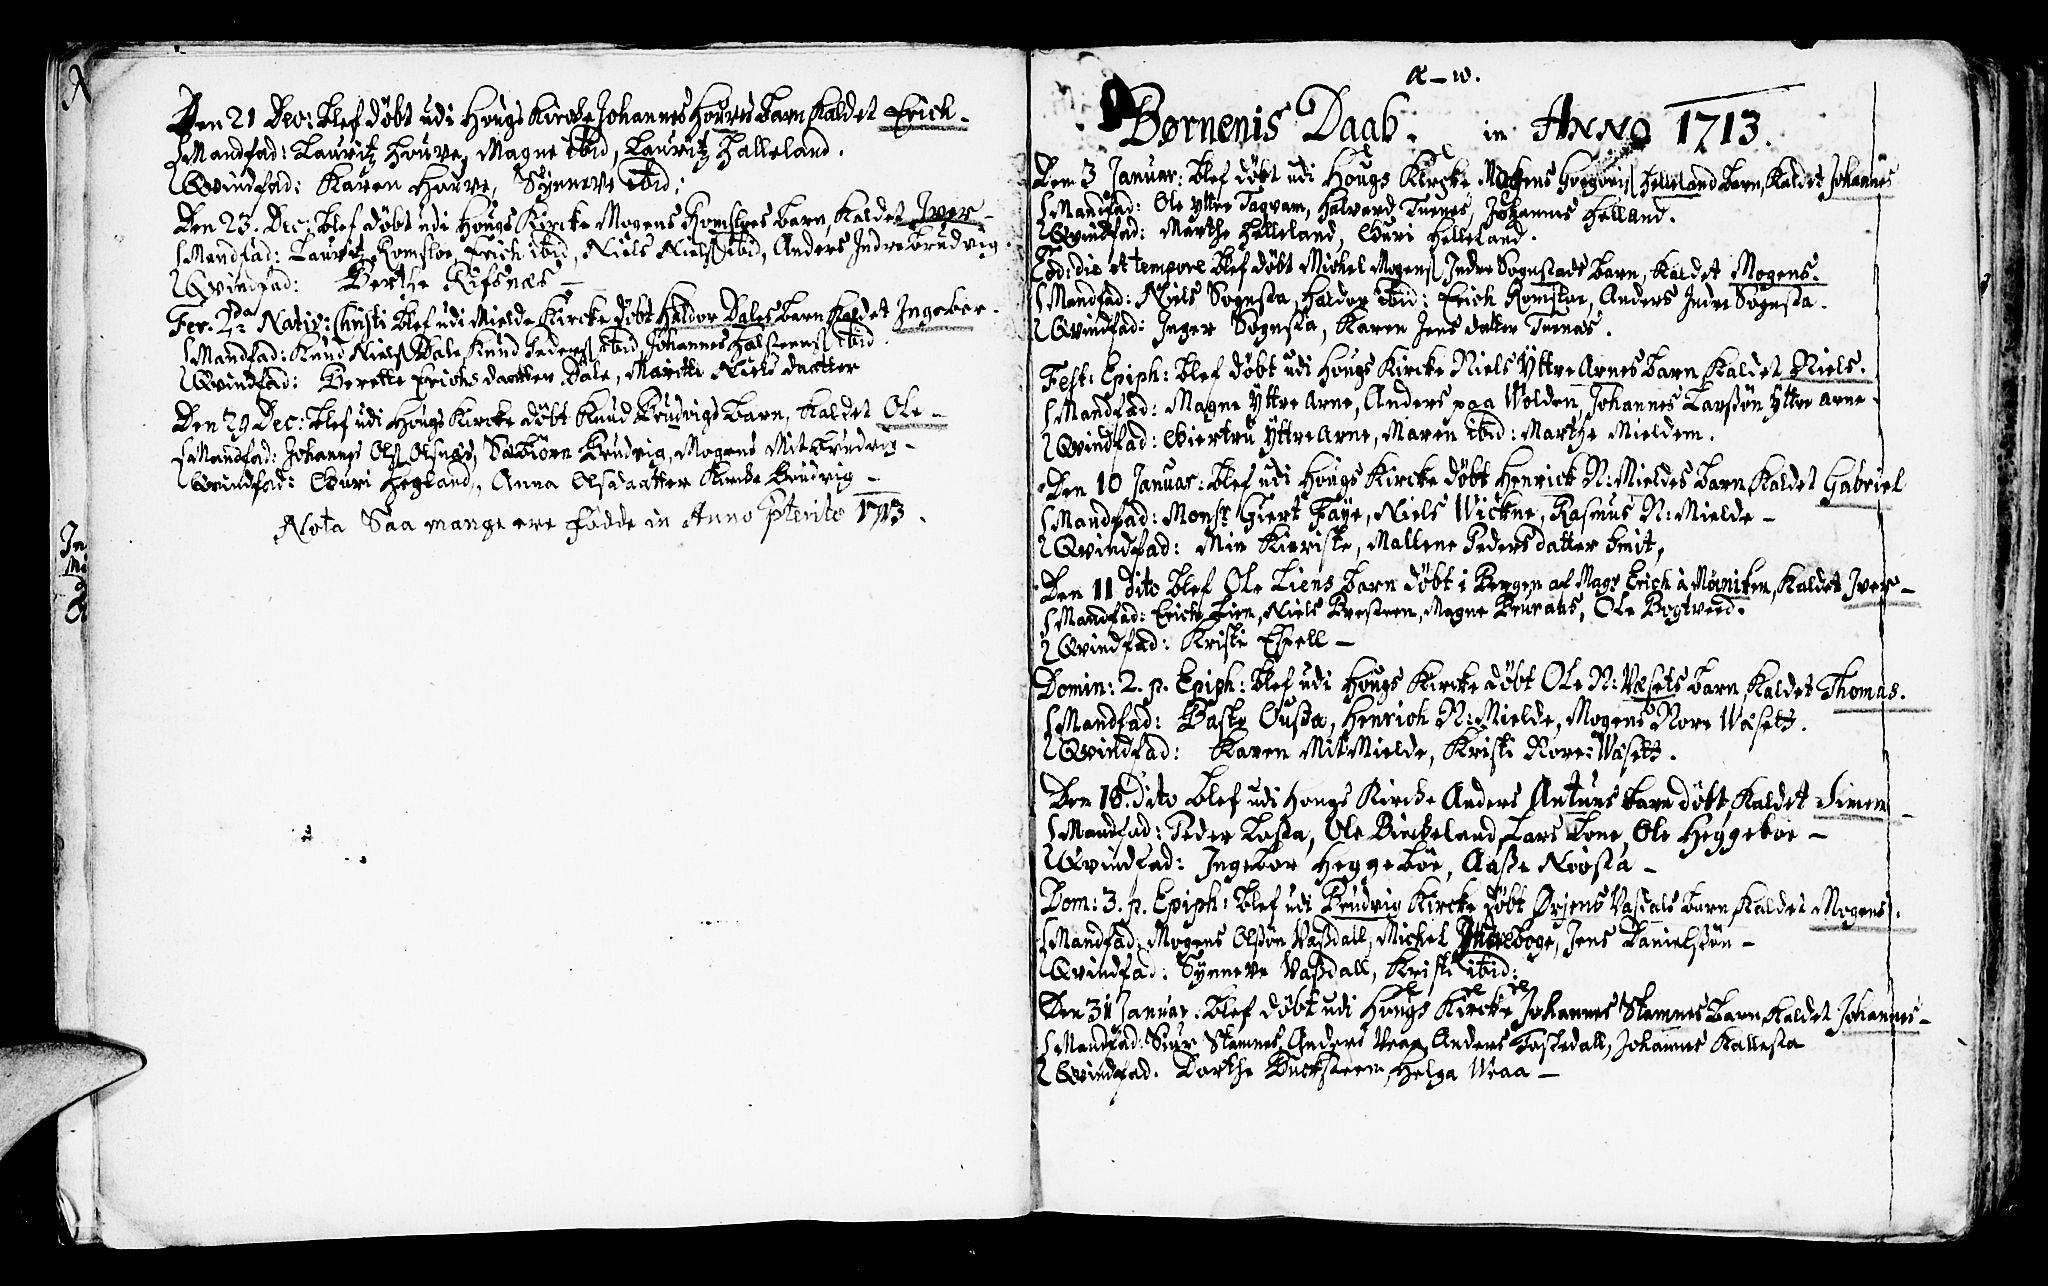 Den 21 Dec: blef döbt udi Hougs Kircke Johannes Horves barn kaldet Erich -
Mandfad: Lauritz Houve, Magne ibid, Lauritz Halleland.
Qvindfad: Karen Horve, Synneve ibid:
Den 23. Dec: blef döbt udi Hougs Kircke Mogens Romsloes barn, kaldet Iver -
Mandfad: Lauritz Romsloe, Erich ibid, Niels Niels: ibid, Anders Indre Brudvig.
Qvindfad: Berthe Rifsnæs -
Fer: 2da Nativ: Christi blef udi Mielde Kircke döbt Haldor Dales barn kaldet Ingebor -
Mandfad: Knud Niels: Dale, Knud Peders: ibid, Johannes Halsteens: ibid.
Qvindfad: Berette Erichs daatter Dale, Maritte Niels daatter
Den 29 Dec: blef udi Hougs Kircke döbt Knud Brudvigs barn, kaldet Ole -
Mandfad: Johannes Ols: Olsnæs, Sæbiörn Brudvig, Mogens Mit Brudvig -
Qvindfad: Guri Hegland, Anna Olsdaatter Kircke Brudvig -
Nota Saa mange ere födde in Anno Pterito 1713.
α - ω.
Børnenis Daab. in ANNO 1713.
Den 3 Januar: blef döbt udi Hougs Kircke Mogens Gregoris: Helleland barn, kaldet Johannes
Mandfad: Ole Yttre Tagvam, Halvard Tuenes, Johannes Helland.
Qvindfad: Marthe Helleland, Guri Helleland.
Eod: die et tempore blef döbt Mickel Mogens: Indre Sognstads barn, kaldet Mogens.
Mandfad: Niels Sognsta, Haldor ibid: Erich Romsloe, Anders Indre Sognsta.
Qvindfad: Inger Sognsta, Karen Jens datter Tuenæs.
Fest: Epiph: blef döbt udi Hougs Kircke Niels Yttre Arnes barn kaldet Niels.
Mandfad: Magne Yttre Arne, Anders paa Wolden, Johannes Larssön Yttre Arne.
Qvindfad: Giertru Yttre Arne, Maren ibid: Marthe Mieldem.
Den 10 Januar: blef udi Hougs Kircke döbt Henrick N: Mieldes barn kaldet Gabriel
Mandfad: Monsr Giert Faÿe, Niels Wickne, Rasmus N: Mielde -
Qvindfad: Min Kieriste, Mallene Peders datter Smit,
Den 11 dito blef Ole Liens barn döbt i Bergen af Magr Erich à Møiniken, kaldet Iver -
Mandfad: Erich Lien, Niels Bresteen, Magne Beuraas, Ole Bogtveed.
Qvindfad: Kristi Espell -
Domin: 2. p. Epiph: blef udi Hougs Kircke döbt Ole N: Væsets barn kaldet Thomas.
Mandfad: Baste Gusta, Henrich N: Mielde, Mogens Nore Wæsett.
Qvindfad: Karen Mit Mielde, Kristi Nore: Wæsett.
Den 18. dito blef udi Hougs Kircke Anders Antuns barn döbt kaldet Simen -
Mandfad: Peder Losta, Ole Birkeland, Lars Lone, Ole Heggeboe -
Qvindfad: Ingebor Heggeböe, Aasse Nöösta -
Dom: 3. p. Epiph: blef udi Brudvig Kircke döbt Ørjens Vassdals barn kaldet Mogens.
Mandfad: Mogens Olssön Vassdall, Michel Yttreboge, Jens Danielssön -
Qvindfad: Synneve Vassdall, Kristi ibid:
Den 31 Januar: blef döbt udi Hougs Kircke Johannes Stamnes barn kaldet Johannes -
Mandfad: Siur Stamnes, Anders Veaa, Anders Fossedall, Johannes Kallesta
Qvindfad: Dorthe Bucksteen, Helga Weaa -